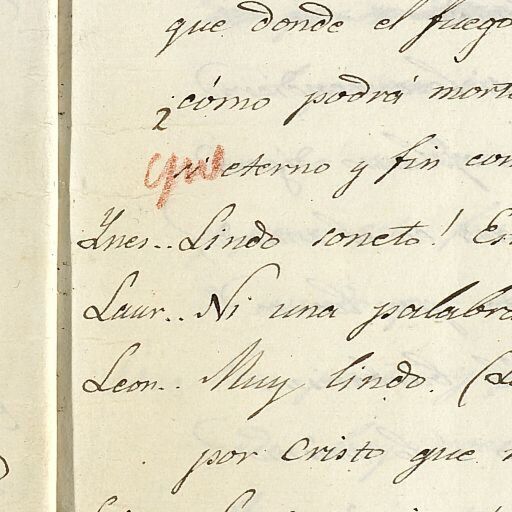 que donde el fuego
cómo podrá mort
2
que eterno y fin con
Ynes.. Lindo soneto! En
Laur.. Ni una palabra
Leon.. Muy lindo. (L
por Cristo que